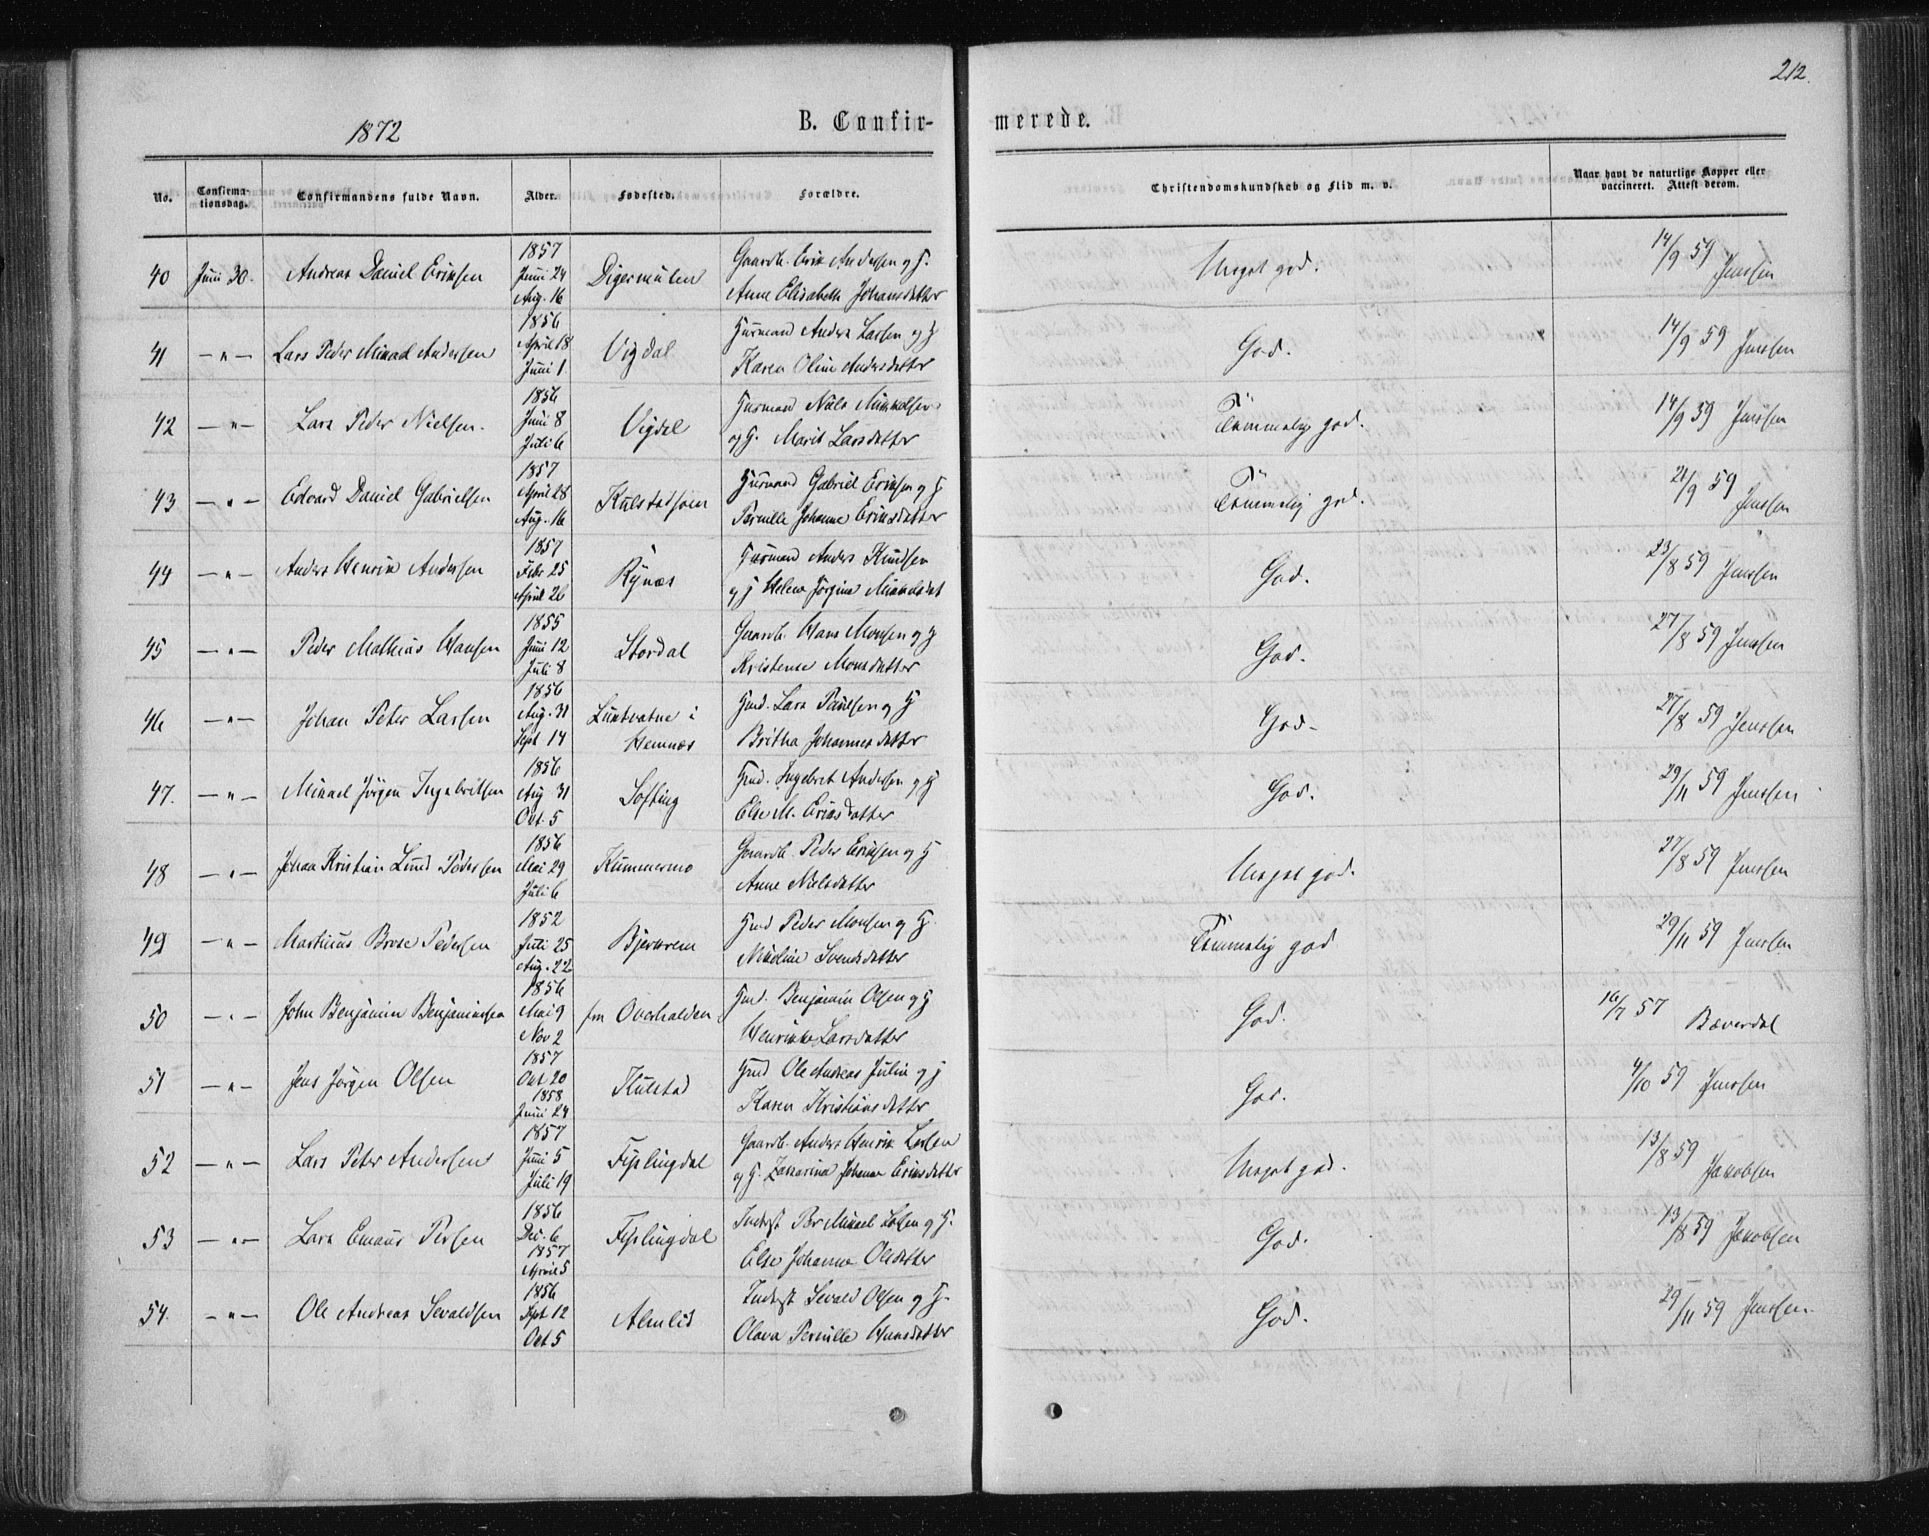 212.
1872
B. Confir-
merede.
No.
Confirma-
tionsdag.
Confirmandens fulde Navn.
Alder.
Fødested.
Forældre.
Christendomskundskab og Flid m. v.
Naar havt de naturlige Kopper eller
vaccineret. Attest derom.
1857
40 Juni 30. Andreas Daniel Eriksen Juni 24 Digermulen Gaardb. Erik Andersen og H. Meget god. 14/9 59 Jenssen
Aug. 16 Anne Elisabeth Johansdatter
1856
41 — " — Lars Peder Mikael Andersen April 18 Vigdal Husmand Anders Larsen og H God. 14/9 59 Jenssen
Juni 1. Karen Oline Andersdatter
1856
42 — " — Lars Peder Nielsen. Juni 8 Vigdal Husmand Niels Mikkelsen Temmelig god. 14/9 59 Jenssen
Juli 6 og H. Marit Larsdatter
1857
43 — " — Edvard Daniel Gabrielsen April 28 Husmand Gabriel Eriksen og H Temmelig god. 21/9 59 Jenssen
Aug. 16 Pernille Johanne Eriksdatter
1857
44 — " — Anders Henrik Andersen Febr 25 Rynæs Husmand Anders Knudsen God. 23/8 59 Jenssen
April 26 og H Helene Jørgine Mikkelsdat
1855
45 — " — Peder Mathias Hansen Juni 12 Stordal Gaardb. Hans Monsen og H God. 27/8 59 Jenssen
Juli 8 Kristense Monsdatter
1856
46 — " — Johan Peter Larsen Aug. 31 i Hmd. Lars Paulsen og H God. 27/8 59 Jenssen
Sept 14 Hemnæs Britha Johannesdatter
1856
47. — " — Mikael Jørgen Ingebritsen Aug 31 Softing Hmd. Ingebret Andersen og H God. 29/11 59 Jenssen
Oct. 5 Else M. Eriksdatter
1856
48 — " — Johan Kristian Lund Pedersen Mai 29 Kummermo Gaardb. Peder Eriksen og H Meget god. 27/8 59 Jenssen
Juli 6 Anne Nielsdatter
1852
49 — " — Martinus Brose Pedersen Juli 25 Bjerkrem Hmd Peder Monsen og H. Temmelig god 29/11 59 Jenssen
Aug. 22 Nikoline Svendsdatter
1856
50 — " — John Benjamin Benjaminsen Mai 9 fra Overhalden Hmd. Benjamin Olsen og H God. 16/7 57 Bæverdal
Nov 2 Henrikke Larsdatter
1857
51 — " — Jens Jørgen Olsen Oct 20 Kulstad Hmd Ole Andreas Julin og H God. 4/10 59 Jenssen
1858
Juni 24 Karen Kristiansdatter
1857
52 — " — Lars Peter Andersen Juni 5 Fiplingdal Gaardb. Anders Henrik Larsen Meget god. 13/8 59 Jakobsen
Juli 19 og H. Zakarina Johanna Eriksdatter
1856
53 — " — Lars Emaus Persen Dec. 6 Fiplingdal Inderst Per Mikael Larsen og H. God. 13/8 59 Jakobsen
1857
April 5 Else Johanna Olsdatter
1856
54. — " — Ole Andreas Sevaldsen Sept 12 Almlid Inderst Sevald Olsen og H. God. 29/11 59 Jenssen.
Oct 5 Olava Pernille Hansdatter